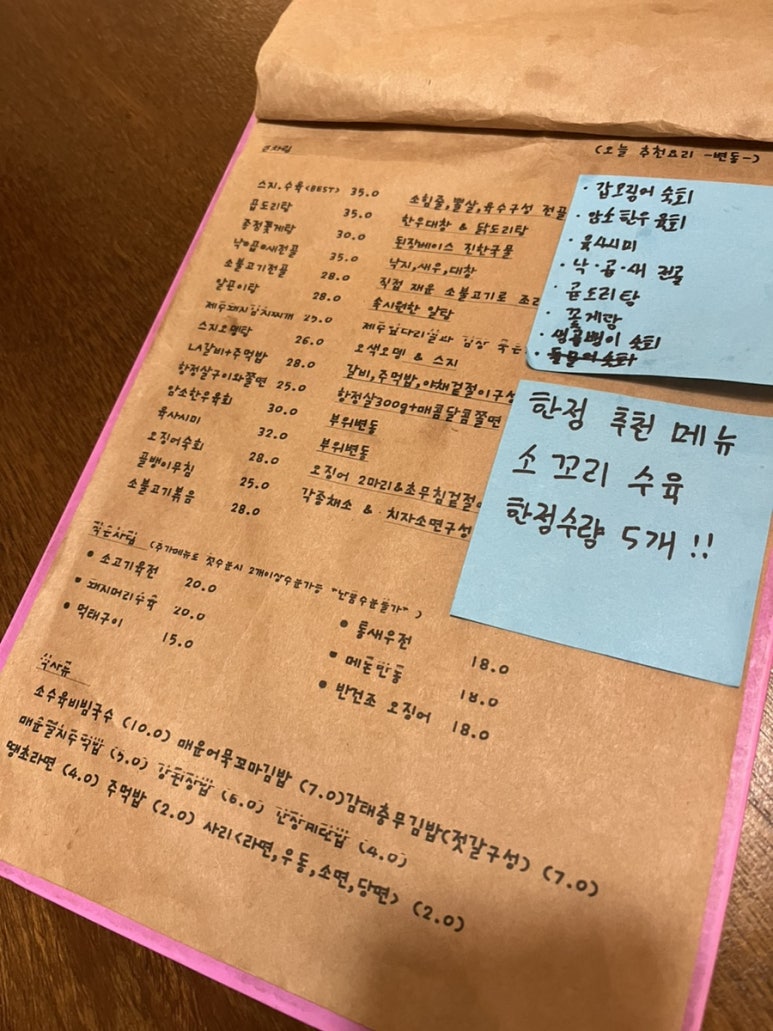 큰차림
(오늘 추천요리 -변동-)
스지.수육<BEST> 35.0 소힘줄,뽈살,육수구성 전골
곱도리탕 35.0 한우대창 & 닭도리탕
충정꽃게탕 30.0 된장베이스 진한국물
낙•곱•새전골 35.0 낙지,새우,대창
소불고기전골 28.0 직접 재운 소불고기로 조리
알곤이탕 28.0 속시원한 알탕
제주돼지김치찌개 25.0 제주
스지오뎅탕 26.0 오색오뎅 & 스지
LA갈비+주먹밥 28.0 갈비,주먹밥,야채겉절이구성
항정살구이와쫄면 25.0 항정살300g+매콤달콤쫄면
암소한우육회 30.0 부위변동
육사시미 32.0 부위변동
오징어숙회 28.0 오징어 2마리&초무침겉절이
골뱅이무침 25.0 각종채소 & 치자소면구성
소불고기볶음 28.0
· 갑오징어 숙회
· 암소한우육회
· 육사시미
· 낙·곱·새 전골
· 곱도리탕
· 꽃게탕
· 생골뱅이 숙회
한정 추천 메뉴
소 꼬리 수육
한정수량 5개 !!
작은차림 (추가메뉴도 첫주문시 2개이상주문가능 "단품주문불가")
• 소고기육전 20.0
• 돼지머리수육 20.0
• 먹태구이 15.0
• 통새우전 18.0
• 메론만동 18.0
• 반건조 오징어 18.0
식사류
소수육비빔국수 (10.0) 매운어묵꼬마김밥 (7.0)감태충무김밥(젓갈구성) (7.0)
매운멸치주먹밥 (5.0) 강된장밥 (6.0) 간장계란밥 (4.0)
땡초라면 (4.0) 주먹밥 (2.0) 사리<라면,우동,소면,당면> (2.0)